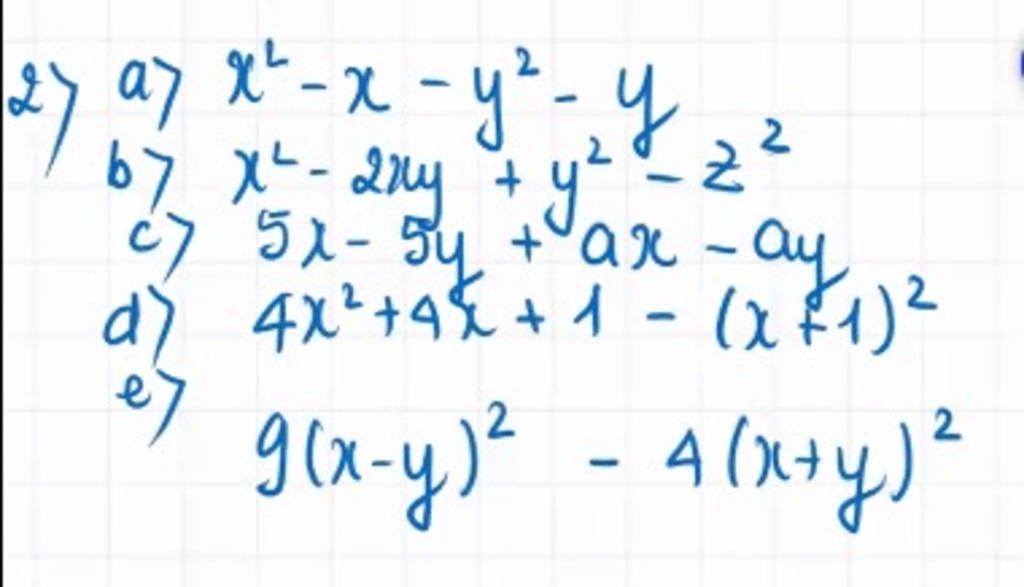 2) a) x² - x - y² - y
b) x² - 2xy + y² - z²
c) 5x - 5y + ax - ay
d) 4x² + 4x + 1 - (x + 1)²
e)
9(x - y)² - 4(x + y)²